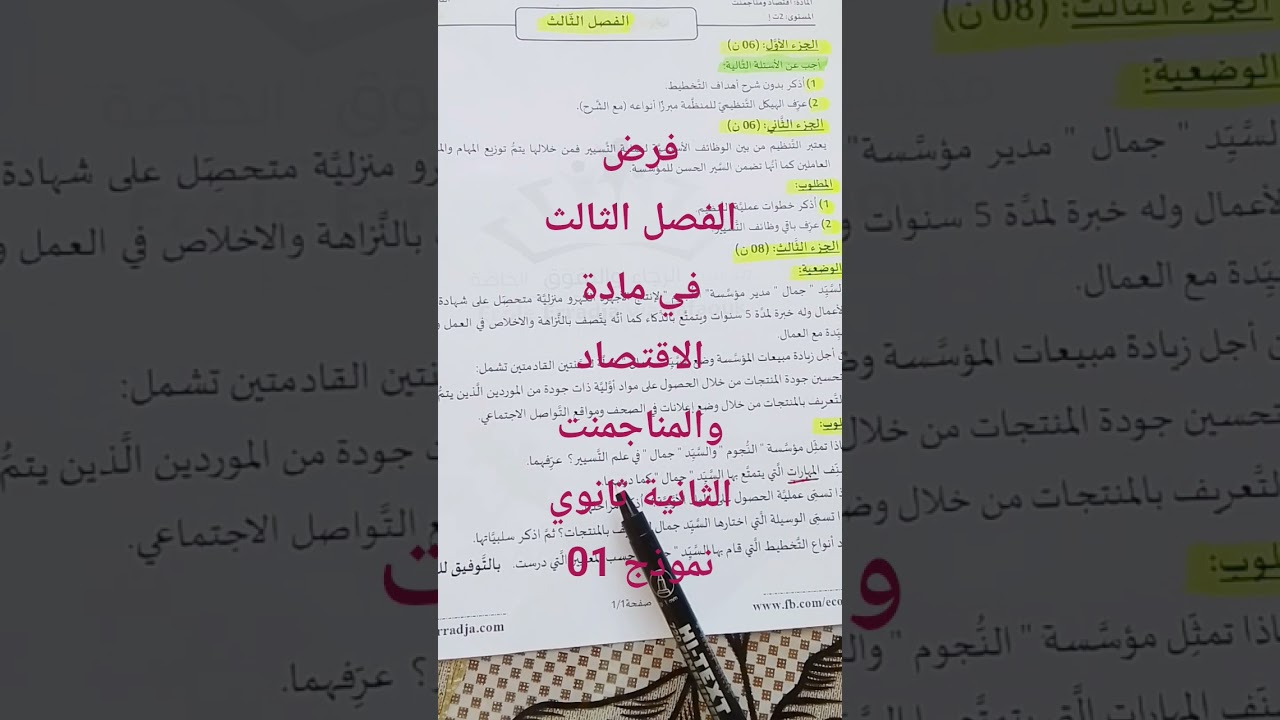 المادة: اقتصاد ومناجمنت
المستوى: 2ت إ
الفصل الثّالث
الجزء الأوّل: (06 ن)
أجب عن الأسئلة التّالية:
1) أذكر بدون شرح أهداف التّخطيط.
2) عرّف الهيكل التّنظيميّ للمنظّمة مبرزًا أنواعه (مع الشّرح).
الجزء الثّاني: (06 ن)
يعتبر التّنظيم من بين الوظائف التّسيير فمن خلالها يتمُّ توزيع المهام
العاملين كما أنّها تضمن السّير الحسن للمؤسّسة.
المطلوب:
1) أذكر خطوات عمليّة
2) عرّف باقي وظائف
الجزء الثّالث: (08 ن)
الوضعية:
السّيّد " جمال " مدير مؤسّسة" لإنتاج الأجهزة منزليّة متحصّل على شهادة
لأعمال وله خبرة لمدّة 5 سنوات ويتمتّع بالذّكاء كما أنّه يتّصف بالنّزاهة والاخلاص في العمل
يّدة مع العمال.
أجل زيادة مبيعات المؤسّسة القادمتين تشمل:
تحسين جودة المنتجات من خلال الحصول على مواد أوّليّة ذات جودة من الموردين الّذين يتمُّ
التّعريف بالمنتجات من خلال وضع إعلانات في الصحف ومواقع التّواصل الاجتماعي.
لوب:
اذا تمثّل مؤسّسة " النّجوم " والسّيّد " جمال " في علم التّسيير؟ عرّفهما.
صنّف المهارات الّتي يتمتّع بها السّيّد " جمال " كما
ذا تسمّى عمليّة الحصول على
ذا تسمّى الوسيلة الّتي اختارها السّيّد جمال بالمنتجات؟ ثمّ اذكر سلبيّاتها.
د أنواع التّخطيط الّتي قام بها السّيّد " حسب الّتي درست.
بالتّوفيق
صفحة 1/1
www.fb.com/eco
rradja.com
فرض
الفصل الثالث
في مادة
الاقتصاد
والمناجمنت
الثانية ثانوي
نموذج 01